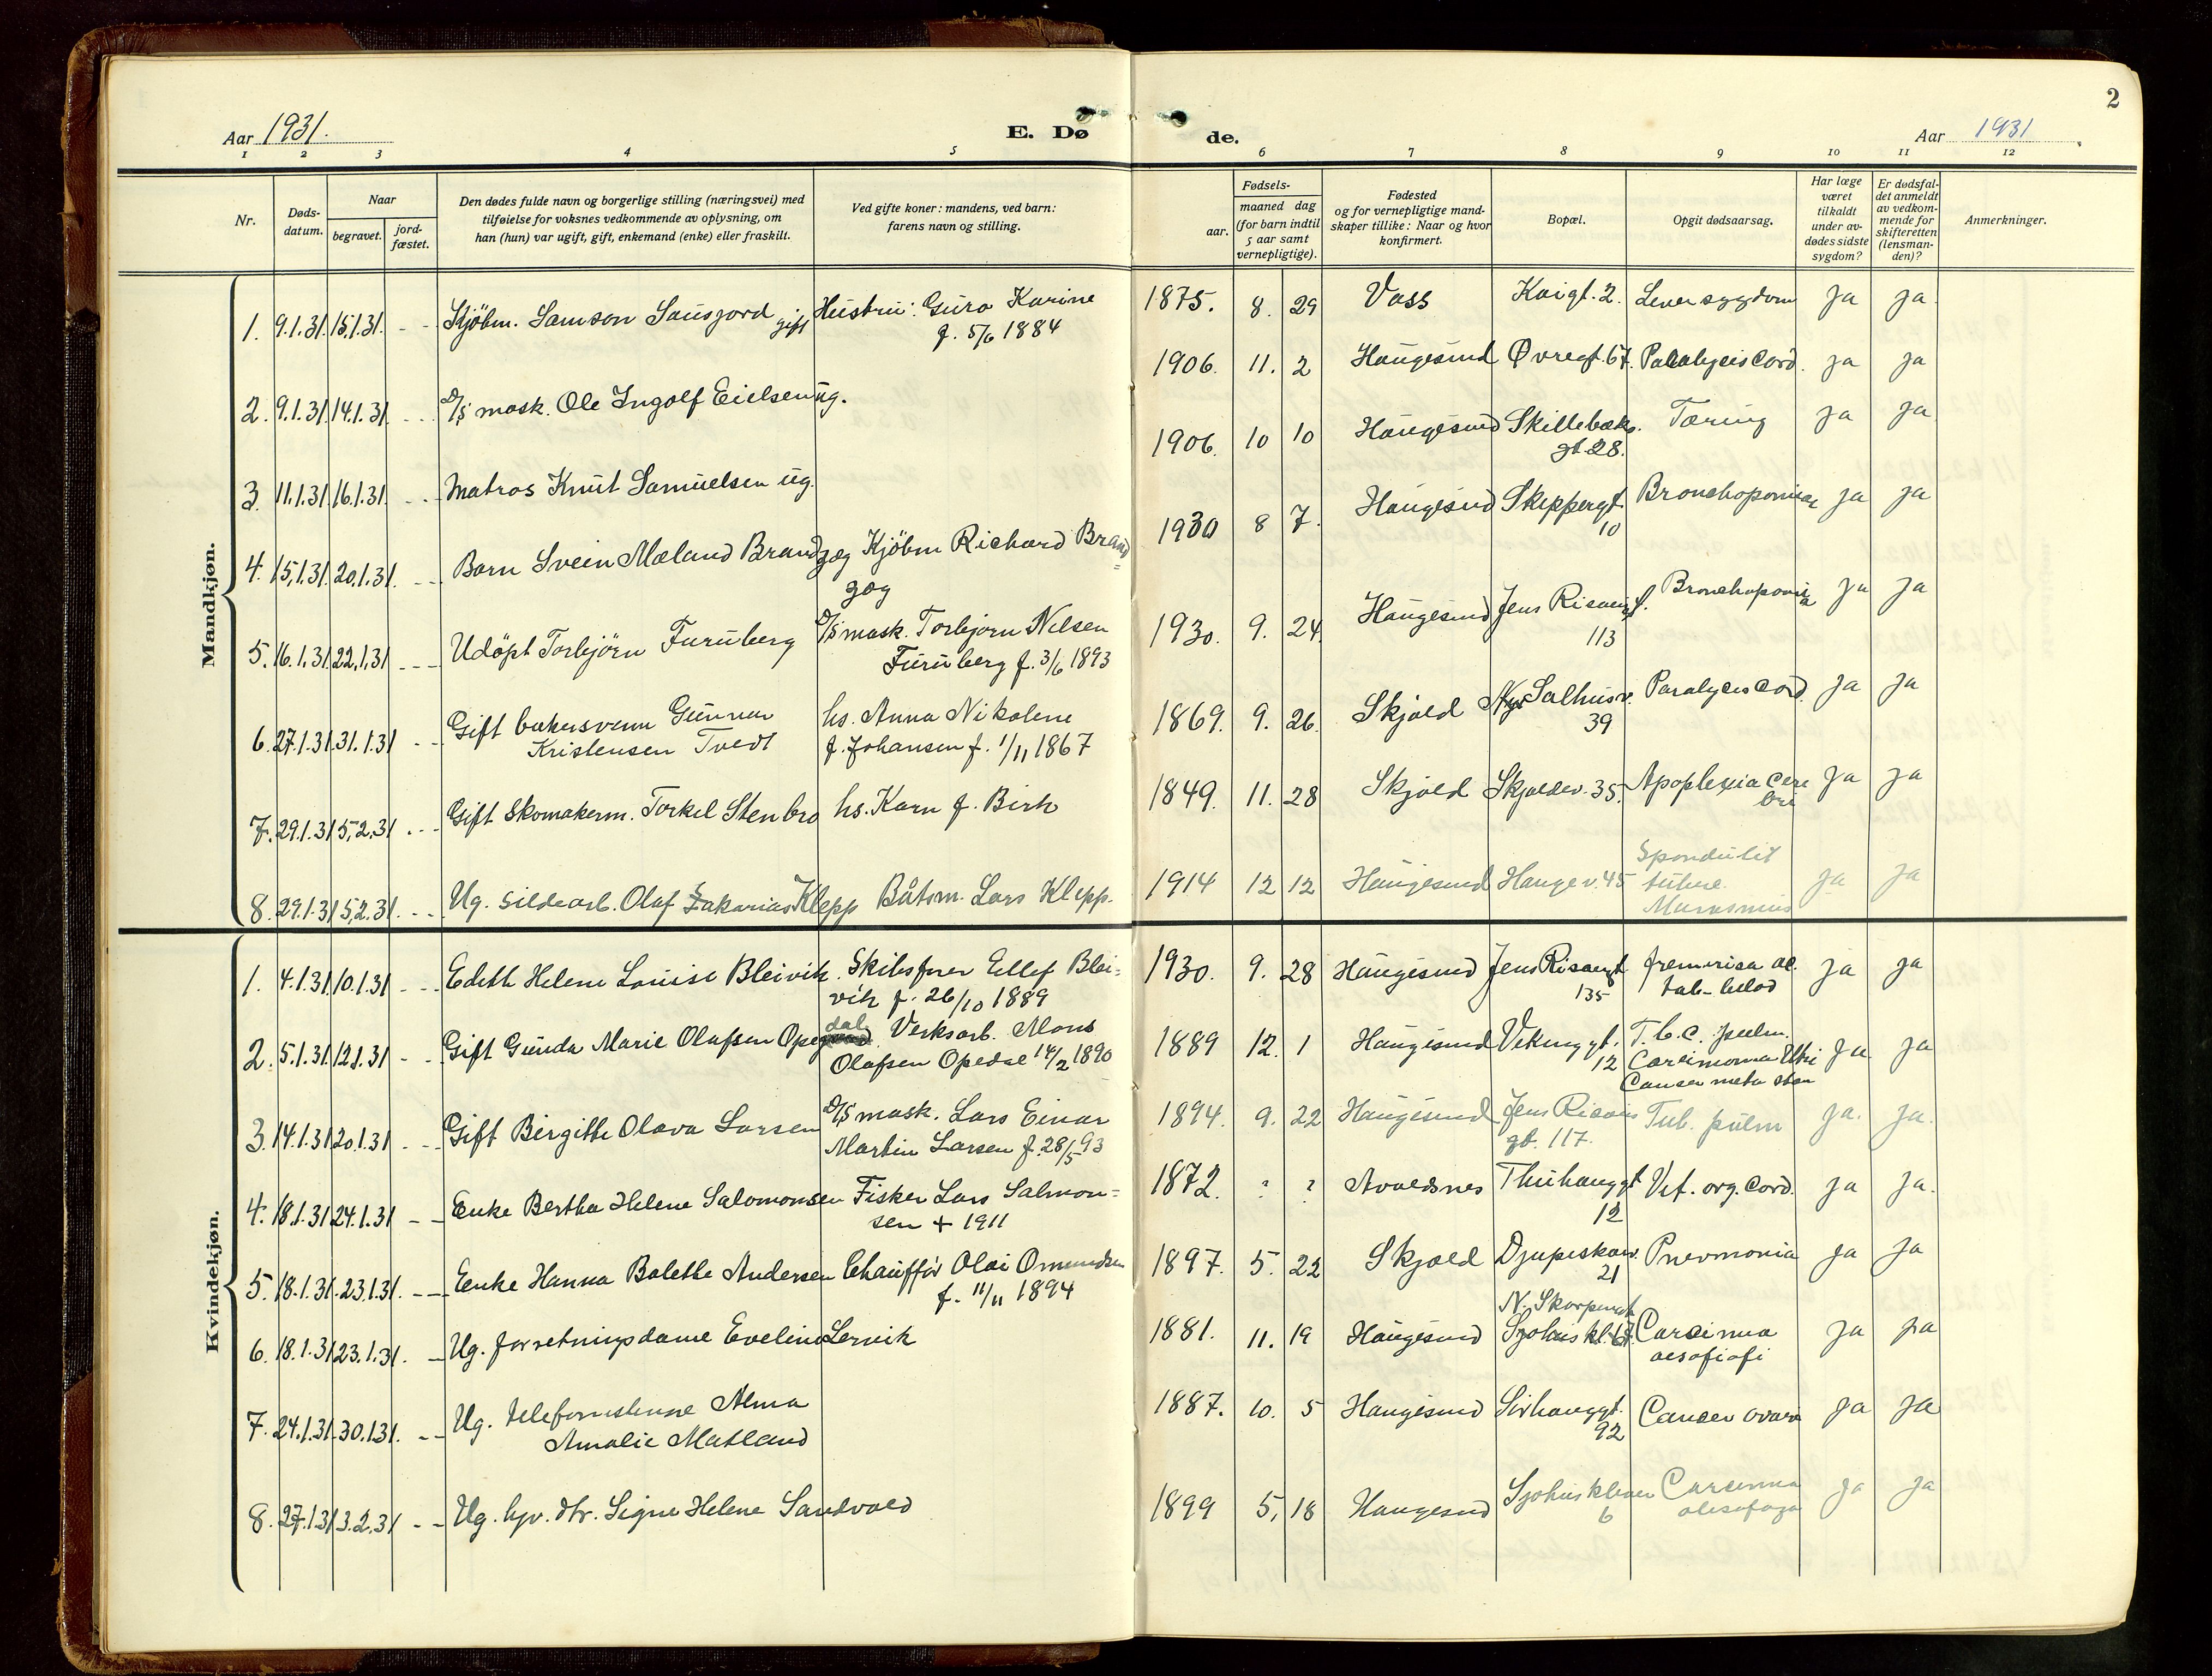 2
Aar 1931.
E. Dø
de.
Aar 1931
1 2 3 4 5 6 7 8 9 10 11 12
Nr.
Døds-
datum.
Naar
begravet.
jord-
fæstet.
Den dødes fulde navn og borgerlige stilling (næringsvei) med
tilføielse for voksnes vedkommende av oplysning, om
han (hun) var ugift, gift, enkemand (enke) eller fraskilt.
Ved gifte koner: mandens, ved barn:
farens navn og stilling.
Fødsels-
aar.
maaned dag
(for barn indtil
5 aar samt
vernepligtige).
Fødested
og for vernepligtige mand-
skaper tillike: Naar og hvor
konfirmert.
Bopæl.
Opgit dødsaarsag.
Har læge
været
tilkaldt
under av-
dødes sidste
sygdom?
Er dødsfal-
det anmeldt
av vedkom-
mende for
skifteretten
(lensman-
den)?
Anmerkninger.
Mandkjøn.
1. 9.1.31. 15.1.31. - - Kjöbm. Samson Sausjord gift Hustru: Guro Karine 1875. 8. 29 Voss Kaigt. 2. Leversygdom ja ja
f. 5/6 1884
2. 9.1.31. 14.1.31. - - D/S mask. Ole Ingolf Eielsen ug. 1906. 11. 2 Haugesund Øvregt. 67. Paralysis Cord. ja ja
3. 11.1.31. 16.1.31. - - Matros Knut Samuelsen ug. 1906. 10 10 Haugesund Skillebæks. Tæring ja ja
gt. 28.
4. 15.1.31. 20.1.31. - - Barn Svein Mæland Brandzæg Kjöbm Richard Brand= 1930 8 7. Haugesund Skippergt. ja ja
zæg
10
5. 16.1.31 22.1.31 - - Udöpt Torbjörn Furuberg D/S mask. Torbjørn Nilsen 1930. 9. 24. Haugesund Jens Risøengt. ja ja
Furuberg f. 3/6 1893
113
6. 27.1.31. 31.1.31 - - Gift bakersvenn Gunnar hs. Anna Nikolene 1869. 9. 26. Skjold Salhusv. Paralyses Cord. ja ja
Kristensen Tvedt f. Johansen f. 1/11 1867
39
7. 29.1.31 5.2.31 - - Gift Skomakerm. Torkel Stenbro hs. Karn f. Birk 1849. 11. 28 Skjold Skjoldev. 35. Apoplexia Cere ja ja
bri
8. 29.1.31 5.2.31. - - Ug. sildearb. Olaf Zakarias Klepp Båtsm. Lars Klepp. 1914 12 12 Haugesund Haugev. 45 Spondulit ja ja
tuberc.
Kvindekjøn.
1. 4.1.31. 10.1.31 - - Edith Helene Louise Bleivik. Skibsfører Ellef Blei= 1930. 9. 28 Haugesund Jens Risøengt ja ja
vik f. 26/10 1889
135
2. 5.1.31. 12.1.31 - - Gift Gunda Marie Olafsen Opedal Verksarb. Mons 1889 12. 1 Haugesund Vikinggt. T.b.c. pulm. ja ja
Olafsen Opedal 14/2 1890
12 Carcinoma Utri
Cancer meta stan
3. 14.1.31 20.1.31 - - Gift Birgitte Olava Larsen D/S mask. Lars Einar 1894. 9. 22 Haugesund Jens Risøens Tub. pulm ja. ja.
Martin Larsen f. 28/5 93
gt. 117.
4. 18.1.31 24.1.31 - - Enke Bertha Helene Salomonsen Fisker Lars Salmon= 1872. ? ? Avaldsnes Thuhauggt Vit. org. Cord. ja ja.
sen + 1911
12
5. 18.1.31. 23.1.31. - - Enke Hanna Bolette Andersen Chauffør Olai Omundsen 1897. 5. 22 Skjold Djupeskarv. Pnevmonia ja ja
f. 11/11 1894
21
6. 18.1.31 23.1.31. - Ug. forretningsdame Eveline Lervik 1881. 11. 19 Haugesund N. Skarpengt Carcinma ja ja
oesofiofi
7. 24.1.31. 30.1.31. - - Ug. telefonistinne Alma 1887. 10. 5 Haugesund Sørhauggt. Cancer ovari ja ja
Amalie Matland
92
8. 27.1.31 3.2.31 - - Ug. hjv. dtr. Signe Helene Sandvold 1899 5. 18 Haugesund Sjohuskleven Carcinma ja ja
6 olesofaga